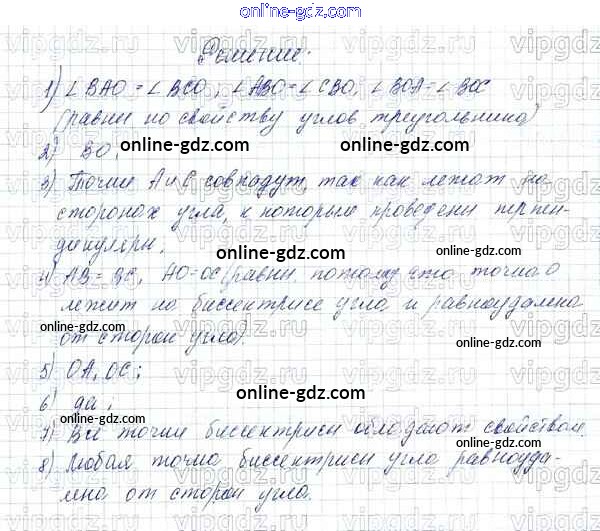 online-gdz.com
Решение.
1) ∠ BAO = ∠ BCO; ∠ ABO = ∠ CBO, ∠ BOA = ∠ BOC
(равны по свойству углов треугольника)
online-gdz.com online-gdz.com
2) BO;
3) Точки A и C совпадут, так как лежат на
online-gdz.com
сторонах угла, к которые проведены перпен-
дикуляры.
online-gdz.com
4) AB = BC, AO = OC (равны потому что точка O
лежит на биссектрисе угла, и равноудалена
online-gdz.com online-gdz.com
от сторон угла).
5) OA, OC;
online-gdz.com
6) да;
online-gdz.com
7) Все точки биссектрисы обладают свойством.
online-gdz.com
8) Любая точка биссектрисы угла равноуда-
лена от сторон угла.
online-gdz.com